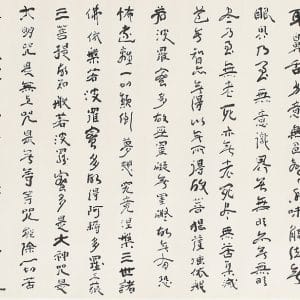 眼界乃至無意識界無無明亦無無明
盡乃至無老死亦無老死盡無苦集滅
道無智亦無得以無所得故菩提薩埵依般
若波羅蜜多故心無罣礙無罣礙故無有恐
怖遠離一切顛倒夢想究竟涅槃三世諸
佛依般若波羅蜜多故得阿耨多羅三藐
三菩提故知般若波羅蜜多是大神咒是
大明咒是無上咒是無等等咒能除一切苦